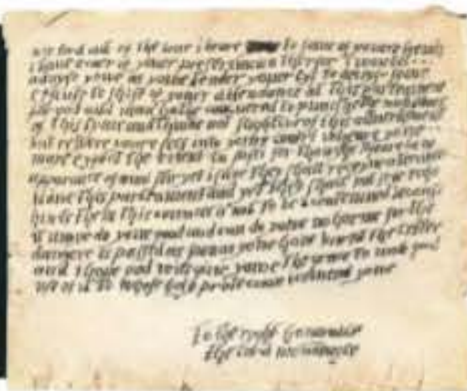 my lord out of the love i beare to some of youere frends
i have a caer of youer preservacion therfor i would
advyse yowe as yowe tender youer lyf to devyse some
excuse to shift of youer attendance at this parleament
for god and man hathe concurred to punishe the wickednes
of this tyme and thinke not slightlye of this advertisment
but retyere youre self into youre contri wheare yowe
maye expect the event in safti for thowghe theare be no
apparance of anni stir yet i saye they shall receyve a terrible
blowe this parleament and yet they shall not seie who
hurts them this cowncel is not to be contemned because
it maye do yowe good and can do yowe no harme for the
dangere is passed as soon as yowe have burnt the letter
and i hope god will give yowe the grace to mak good
use of it to whose holy proteccion i comend yowe
To the right honorable
the lord mowteagle